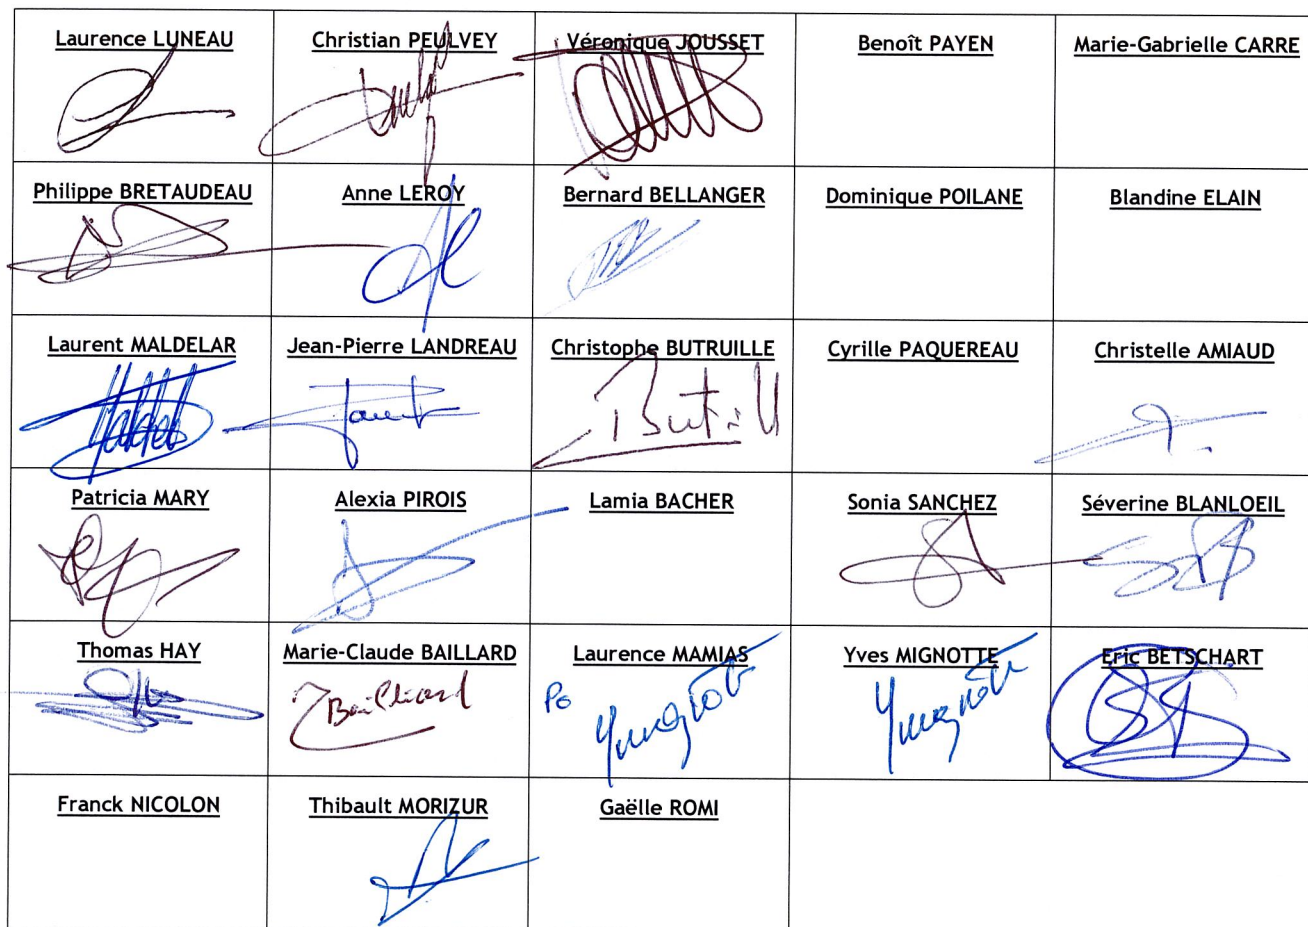 Laurence LUNEAU
Christian PEULVEY
Véronique JOUSSET
Benoît PAYEN
Marie-Gabrielle CARRE
Philippe BRETAUDEAU
Anne LEROY
Bernard BELLANGER
Dominique POILANE
Blandine ELAIN
Laurent MALDELAR
Jean-Pierre LANDREAU
Christophe BUTRUILLE
Cyrille PAQUEREAU
Christelle AMIAUD
Patricia MARY
Alexia PIROIS
Lamia BACHER
Sonia SANCHEZ
Séverine BLANLOEIL
Thomas HAY
Marie-Claude BAILLARD
Laurence MAMIAS
Yves MIGNOTTE
Eric BETSCHART
Po
Franck NICOLON
Thibault MORIZUR
Gaëlle ROMI